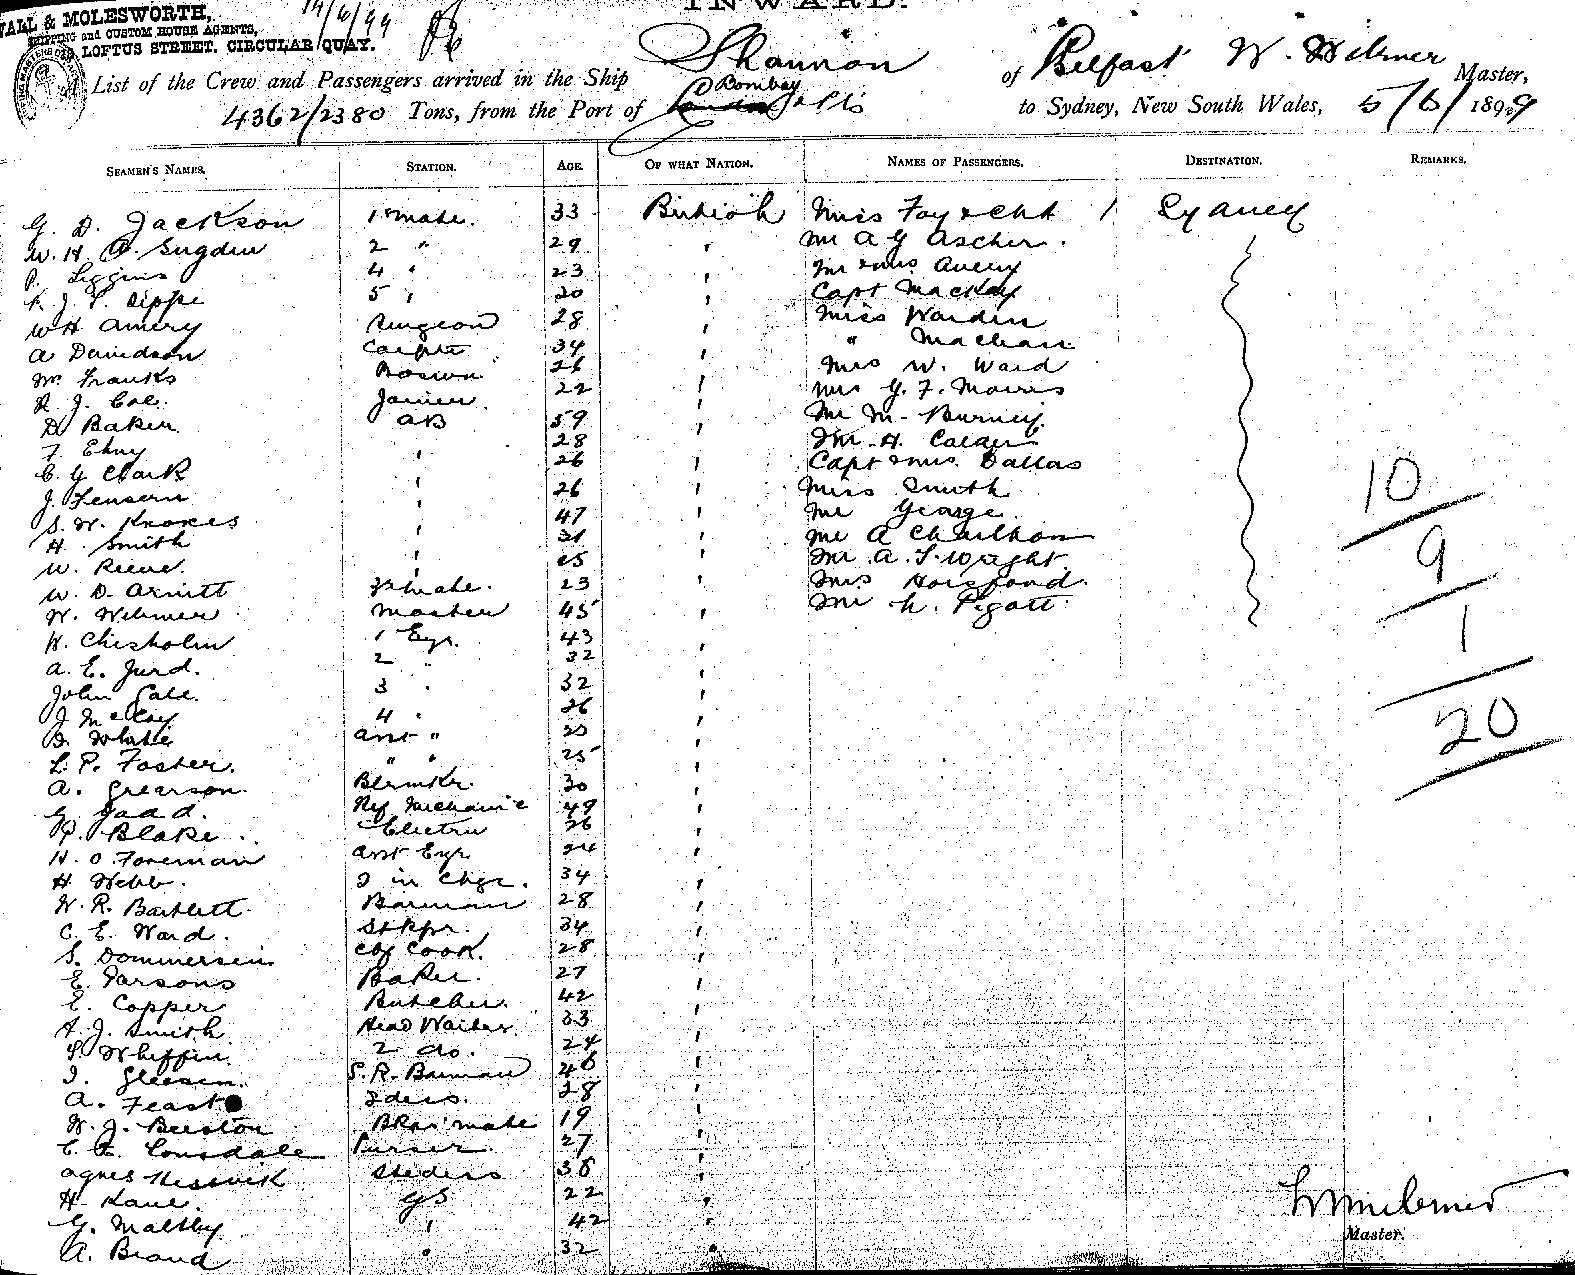 INWARD.
WALL & MOLESWORTH,
SHIPPING and CUSTOM HOUSE AGENTS,
LOFTUS STREET. CIRCULAR QUAY.
List of the Crew and Passengers arrived in the Ship Shannon of Belfast W. Welmer Master,
4362/2380 Tons, from the Port of Bombay to Sydney, New South Wales, 5/6/1899
SEAMEN'S NAMES. STATION. AGE. OF WHAT NATION. NAMES OF PASSENGERS. DESTINATION. REMARKS.
G. D. Jackson 1 mate. 33 British Miss Foy & Chd 1 Sydney
W. H. Sugden 2 " 29 Mr A G Ascher.
Liggins 4 " 23 Mr & Mrs Avery
Sippe 5 " 20 Capt Mackay
W H Amery Surgeon 28 Miss Warden
A Davidson Carptr 34 " Maclean
M. Franks Boswn 26 Mrs W. Ward
R. J. Cole. Joiner. 22 Mrs G. F. Morris
D Baker. AB 59 Mr M. Burney.
F. 28 Mr H.
C. G Clark 26 Capt & Mrs. Dallas
J. 26 Miss Smith
S. W. 47 Mr George.
H. Smith 31 Mr A
W. Reeve. 25 Mr A. S. Wright
W. D. Arnitt 3rd mate. 23 Mrs Horsford.
W. Welmer Master 45 Mr Pigott
W. Chisholm 1 Egr. 43
A. E. Jurd. 2 " 32
John 3 " 32
J McCoy 4 " 26
White Asst "
L. P. Foster. " " 25
A. Grearson. Blrmkr. 30
G. Gadd. Ref Mechanic 49
Blake. Electrn 26
H. O. Foreman Asst Egr 24
H. Webb. 2 in Chge. 34
W. R. Bartlett. Barman 28
C. E. Ward. Stkpr. 34
S. Dommersen. Chf Cook. 28
E. Parsons Baker. 27
E. Copper Butcher. 42
A. J. Smith Head Waiter 33
Whiffin. 2 do. 24
Gleeson. S. R. Barman 46
A. Feast 28
W. J. Beeston Bkrs mate 19
C. Lonsdale Purser 27
Agnes Keswick Stwdess 38
H. Kane. GS 22
G. Maltby " 42
A. Brand " 32
10
9
1
20
Master.